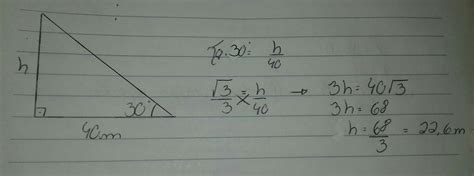 h
30°
40m
Tg.30 = h/40
√3/3 × h/40 → 3h = 40√3
3h = 68
h = 68/3 = 22,6m